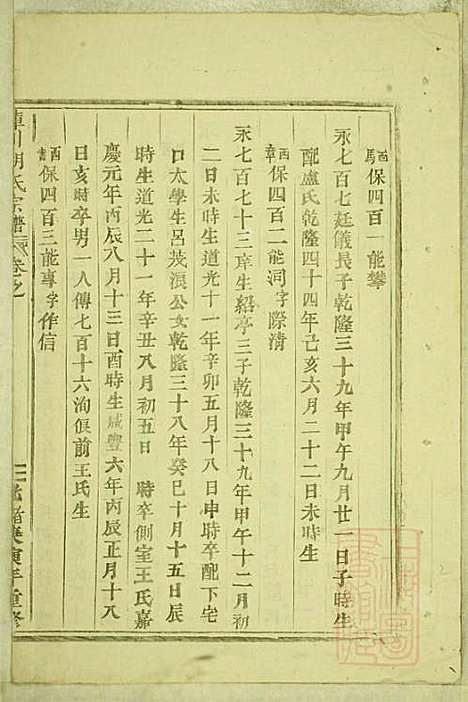 酉
保四百一能攀
永七百七廷儀長子乾隆三十九年甲午九月廿一日子時生
配盧氏乾隆四十四年己亥六月二十二日未時生
酉
章
保四百二能澗字際清
永七百七十三庠生紹亭三子乾隆三十九年甲午十二月初
二日未時生道光十一年辛卯五月十八日申時卒配下宅
口太學生呂茂浪公女乾隆三十八年癸巳十月十五日辰
時生道光二十一年辛丑八月初五日 時卒側室王氏嘉
慶元年丙辰八月十三日酉時生咸豐六年丙辰正月十八
日亥時卒男一人傳七百十六洵偃前王氏生
酉
保四百三能專字作信
川胡氏宗譜
卷之
庚寅年重修